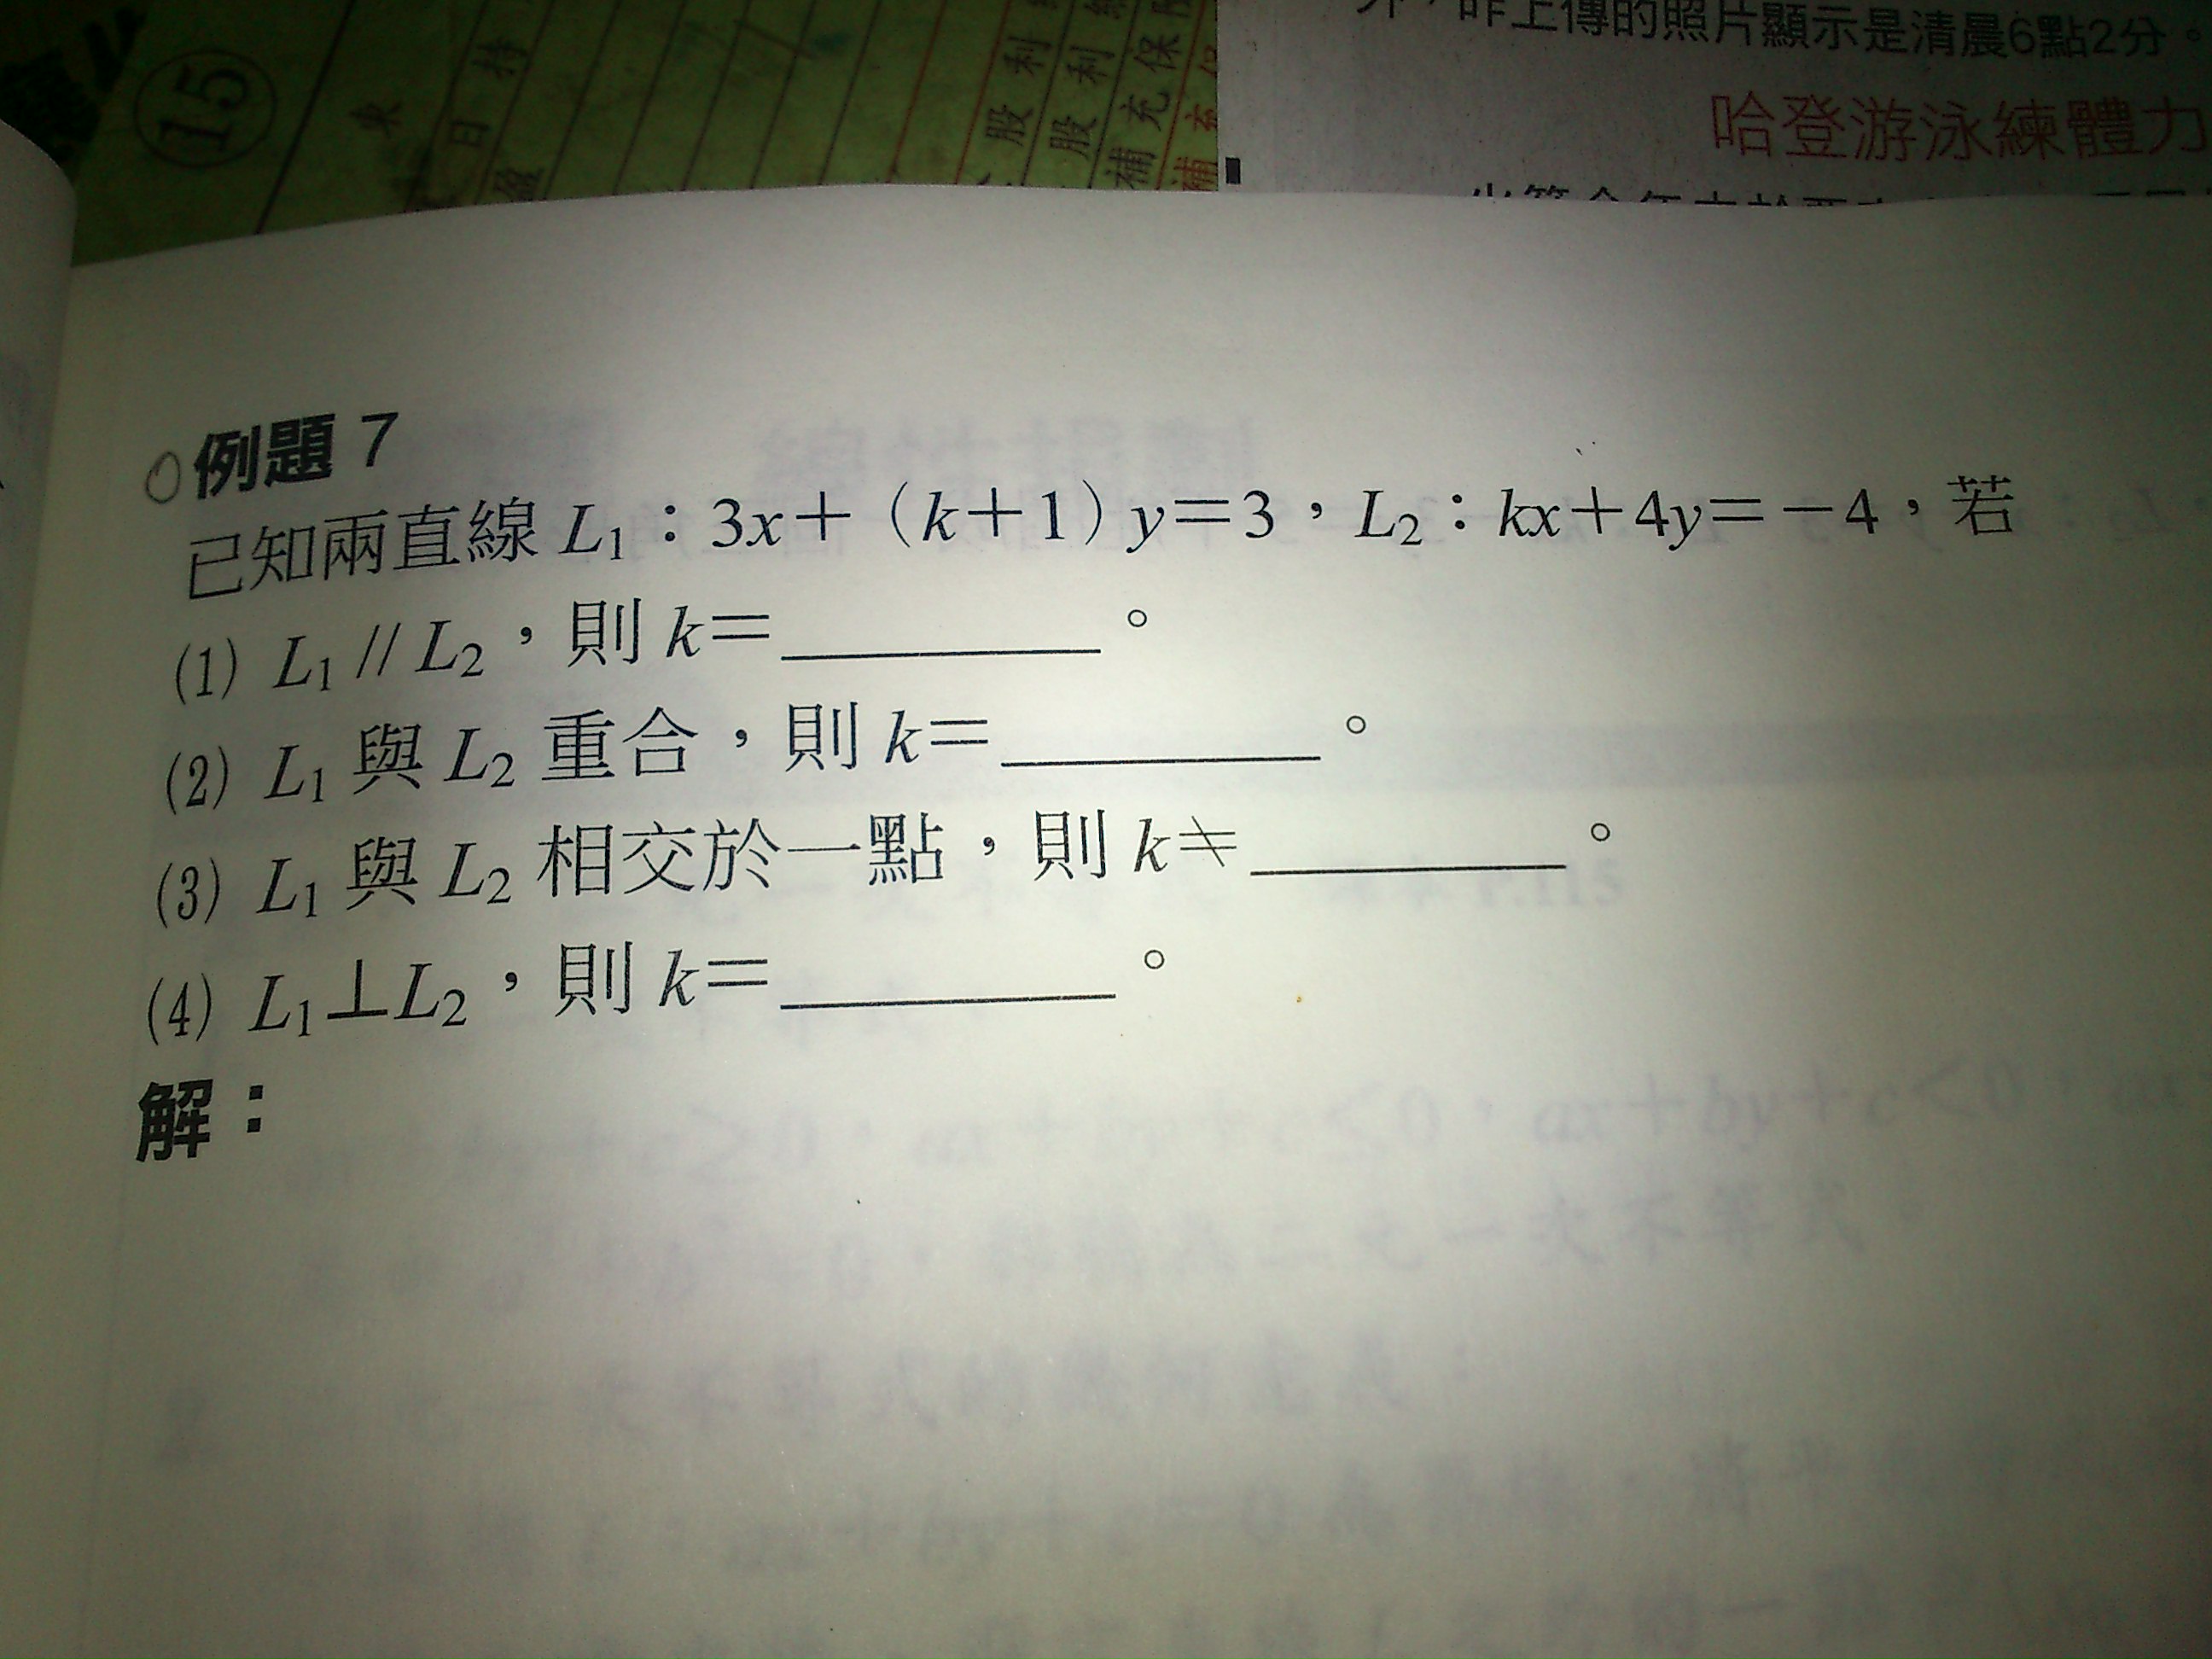 15
股利
股利
補充保
外，昨上傳的照片顯示是清晨6點2分。
哈登游泳練體力
例題 7
已知兩直線 L₁：3x＋（k＋1）y＝3，L₂：kx＋4y＝－4，若
(1) L₁ // L₂，則 k＝__________。
(2) L₁ 與 L₂ 重合，則 k＝__________。
(3) L₁ 與 L₂ 相交於一點，則 k≠__________。
(4) L₁⊥L₂，則 k＝__________。
解：